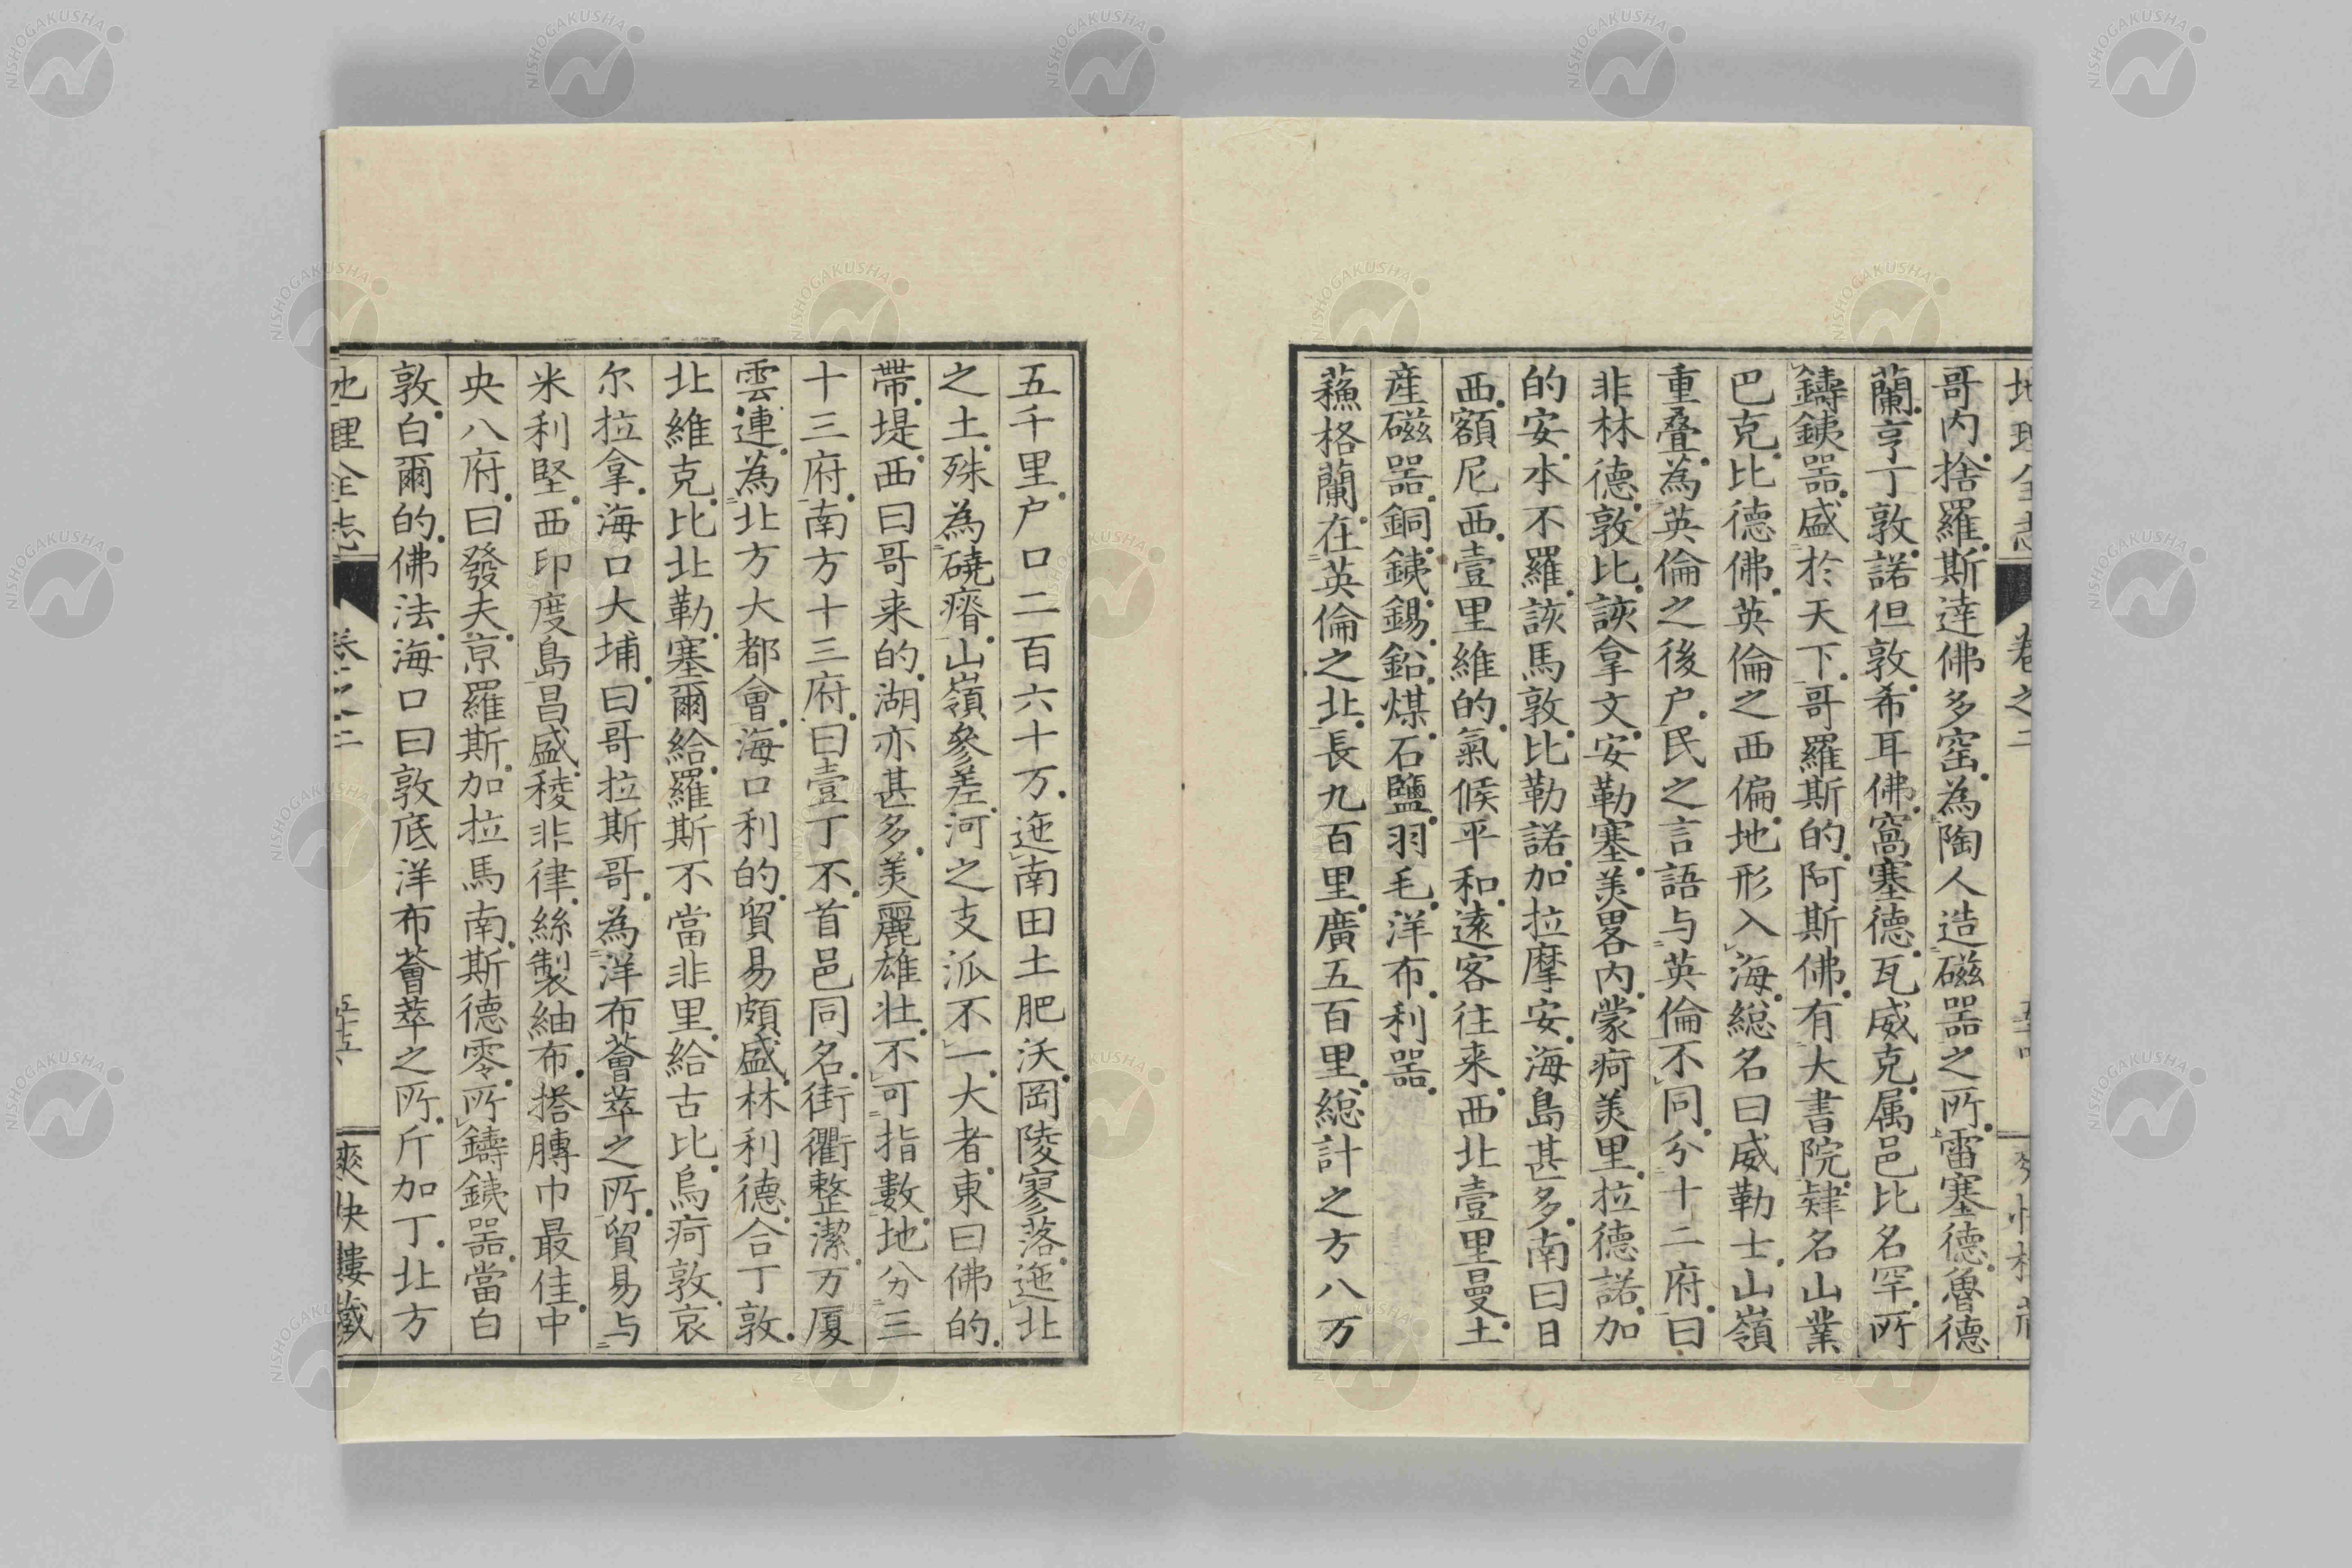 地理全志 卷之二
哥内捨羅斯達佛多窑為陶人造磁器之所雷塞德魯德
蘭亨丁敦諾但敦希耳佛窩塞德瓦威克属邑比名罕所
鑄銕器盛於天下哥羅斯的阿斯佛有大書院肄名山業
巴克比德佛英倫之西偏地形入海総名曰威勒士山嶺
重叠為英倫之後户民之言語与英倫不同分十二府曰
非林德敦比詼拿文安勒塞美畧内蒙疴美里拉德諾加
的安本不羅詼馬敦比勒諾加拉摩安海島甚多南曰日
西額尼西壹里維的氣候平和遠客往来西北壹里曼土
産磁器銅銕錫鉛煤石鹽羽毛洋布利器
蘓格蘭在英倫之北長九百里廣五百里総計之方八万
五千里户口二百六十万迤南田土肥沃岡陵寥落迤北
之土殊為磽瘠山嶺參差河之支派不一大者東曰佛的
帶堤西曰哥来的湖亦甚多美麗雄壮不可指數地分三
十三府南方十三府曰壹丁不首邑同名街衢整潔万厦
雲連為北方大都會海口利的貿易頗盛林利德合丁敦
北維克比北勒塞爾給羅斯不當非里給古比烏疴敦哀
尔拉拿海口大埔曰哥拉斯哥為洋布薈萃之所貿易与
米利堅西印度島昌盛稜非律絲製紬布搭膊巾最佳中
央八府曰發夫亰羅斯加拉馬南斯德零所鑄銕器當白
敦白爾的佛法海口曰敦底洋布薈萃之所斤加丁北方
地理全志 卷之二 五十五 爽快樓蔵